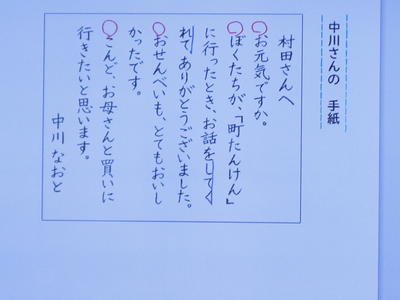 中川さんの 手紙
村田さんへ
お元気ですか。
ぼくたちが、「町たんけん」
に行ったとき、お話をしてく
れてありがとうございました。
おせんべいも、とてもおいし
かったです。
こんど、お母さんと買いに
行きたいと思います。
中川 なおと